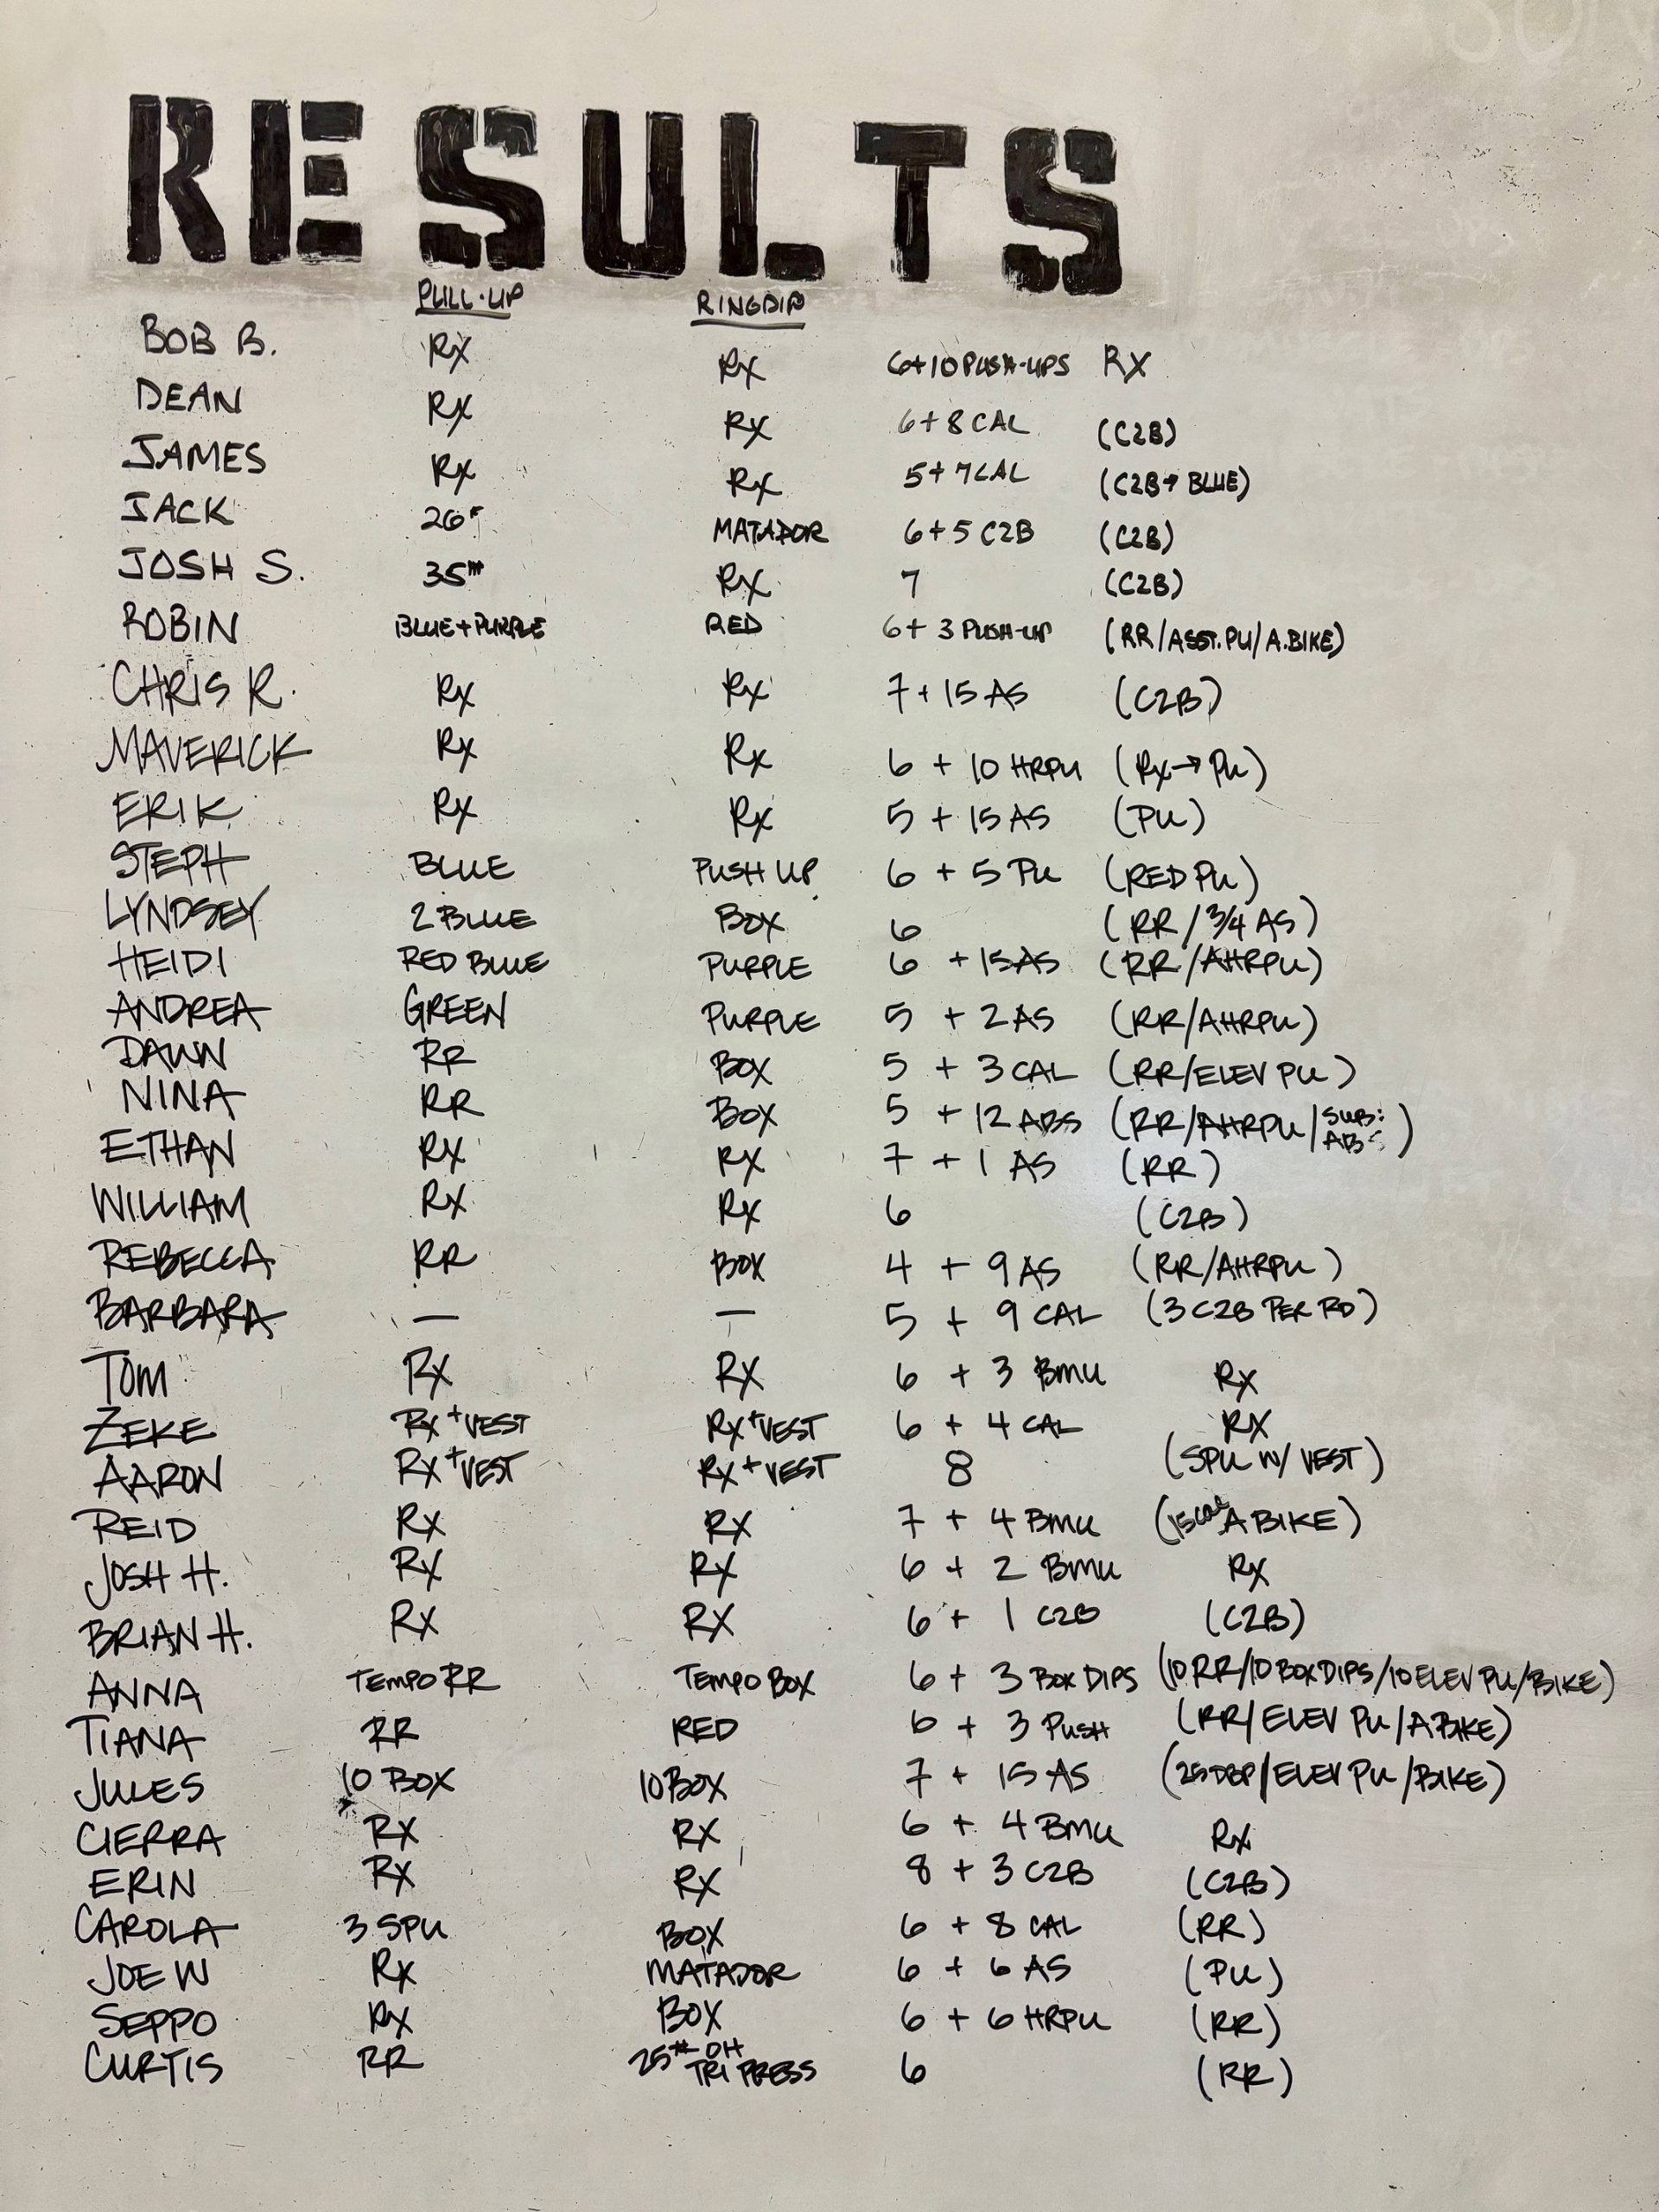 RESULTS
PULL-UP RINGDIP
BOB B. RX RX 6+10 PUSH-UPS RX
DEAN RX RX 6+8 CAL (C2B)
JAMES RX RX 5+7 CAL (C2B→BLUE)
JACK MATADOR 6+5 C2B (C2B)
JOSH S. 35# RX 7 (C2B)
ROBIN BLUE+PURPLE RED 6+3 PUSH-UP (RR/ASST.PU/A.BIKE)
CHRIS R. RX RX 7+15 AS (C2B)
MAVERICK RX RX 6 + 10 HRPU (RX→PU)
ERIK RX RX 5 + 15 AS (PU)
STEPH BLUE PUSH UP 6 + 5 PU (RED PU)
LYNDSEY 2 BLUE BOX 6 (RR/3/4 AS)
HEIDI RED BLUE PURPLE 6 +15AS (RR/AHRPU)
ANDREA GREEN PURPLE 5 + 2 AS (RR/AHRPU)
DAWN RR BOX 5 + 3 CAL (RR/ELEV PU)
NINA RR BOX 5 + 12 ABS (RR/AHRPU/SUB: ABS)
ETHAN RX RX 7 + 1 AS (RR)
WILLIAM RX RX 6 (C2B)
REBECCA RR BOX 4 + 9 AS (RR/AHRPU)
BARBARA — — 5 + 9 CAL (3 C2B PER RD)
TOM RX RX 6 + 3 BMU RX
ZEKE RX+VEST RX+VEST 6 + 4 CAL RX
AARON RX+VEST RX+VEST 8 (SPU W/ VEST)
REID RX RX 7 + 4 BMU (15 CAL A BIKE)
JOSH H. RX RX 6 + 2 BMU RX
BRIAN H. RX RX 6 + 1 C2B (C2B)
ANNA TEMPO RR TEMPO BOX 6 + 3 BOX DIPS (10 RR/10 BOX DIPS/10 ELEV PU/BIKE)
TIANA RR RED 6 + 3 PUSH (RR/ELEV PU/A BIKE)
JULES 10 BOX 10 BOX 7 + 15 AS (25 DBP/ELEV PU/BIKE)
CIERRA RX RX 6 + 4 BMU RX
ERIN RX RX 8 + 3 C2B (C2B)
CAROLA 3 SPU BOX 6 + 8 CAL (RR)
JOE W RX MATADOR 6 + 6 AS (PU)
SEPPO RX BOX 6 + 6 HRPU (RR)
CURTIS RR 25# OH TRI PRESS 6 (RR)